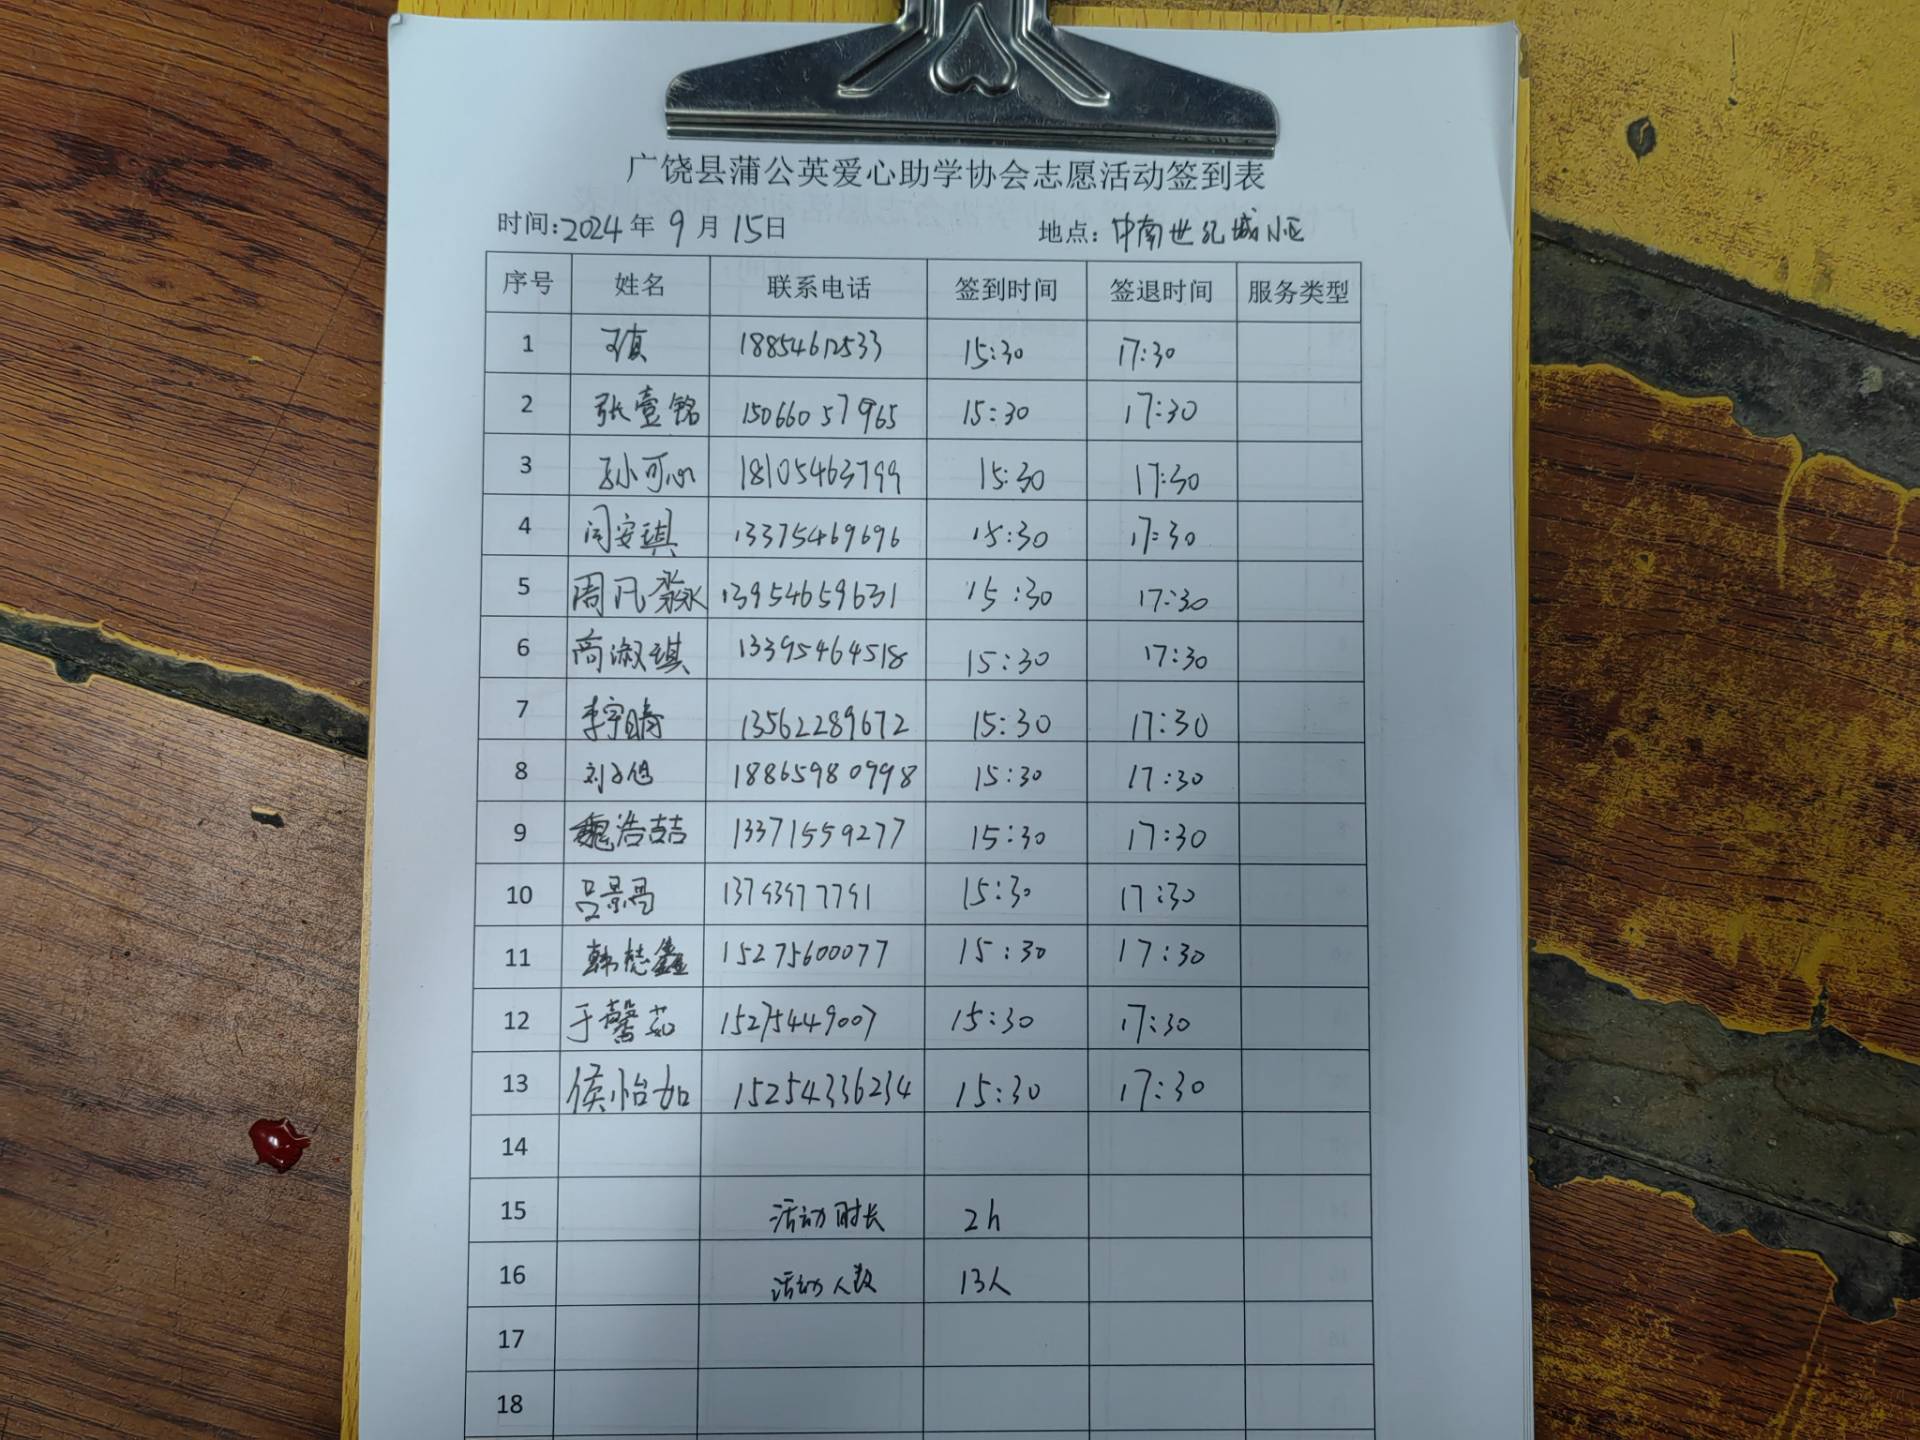 广饶县蒲公英爱心助学协会志愿活动签到表
时间:2024年9月15日 地点:中南世纪城小区
序号 姓名 联系电话 签到时间 签退时间 服务类型
1 王真 18854612533 15:30 17:30
2 张壹铭 15066057965 15:30 17:30
3 孙可心 18105463799 15:30 17:30
4 闫安琪 13375469696 15:30 17:30
5 周凡淼 13954659631 15:30 17:30
6 商淑琪 13395464518 15:30 17:30
7 李宇晴 13562289672 15:30 17:30
8 刘子旭 18865980998 15:30 17:30
9 魏浩喆 13371559277 15:30 17:30
10 吕景 13793977791 15:30 17:30
11 韩志鑫 15275600077 15:30 17:30
12 于馨茹 15275449007 15:30 17:30
13 侯怡如 15254336234 15:30 17:30
14
15 活动时长 2h
16 活动人数 13人
17
18